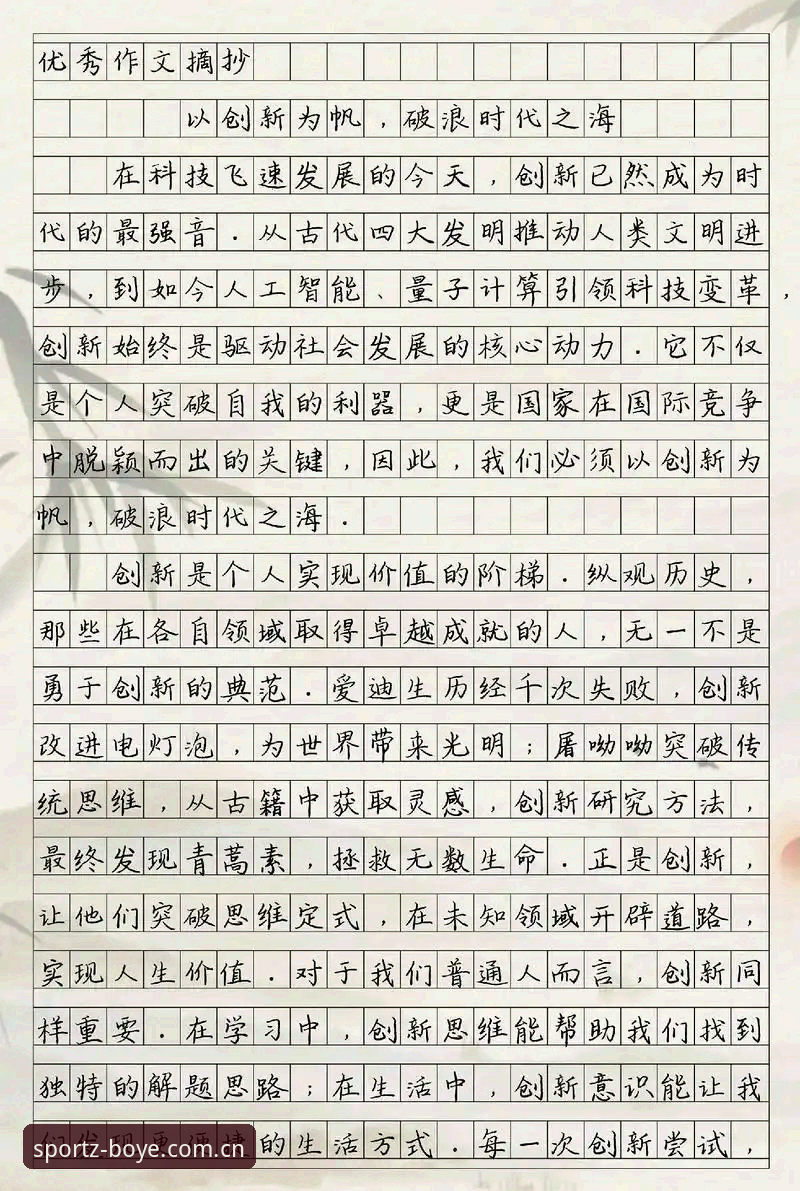 优秀作文摘抄
以创新为帆，破浪时代之海
在科技飞速发展的今天，创新已然成为时
代的最强音．从古代四大发明推动人类文明进
步，到如今人工智能、量子计算引领科技变革，
创新始终是驱动社会发展的核心动力．它不仅
是个人突破自我的利器，更是国家在国际竞争
中脱颖而出的关键，因此，我们必须以创新为
帆，破浪时代之海．
创新是个人实现价值的阶梯．纵观历史，
那些在各自领域取得卓越成就的人，无一不是
勇于创新的典范．爱迪生历经千次失败，创新
改进电灯泡，为世界带来光明；屠呦呦突破传
统思维，从古籍中获取灵感，创新研究方法，
最终发现青蒿素，拯救无数生命．正是创新，
让他们突破思维定式，在未知领域开辟道路，
实现人生价值．对于我们普通人而言，创新同
样重要．在学习中，创新思维能帮助我们找到
独特的解题思路；在生活中，创新意识能让我
们发现更便捷的生活方式．每一次创新尝试，
sportz-boye.com.cn